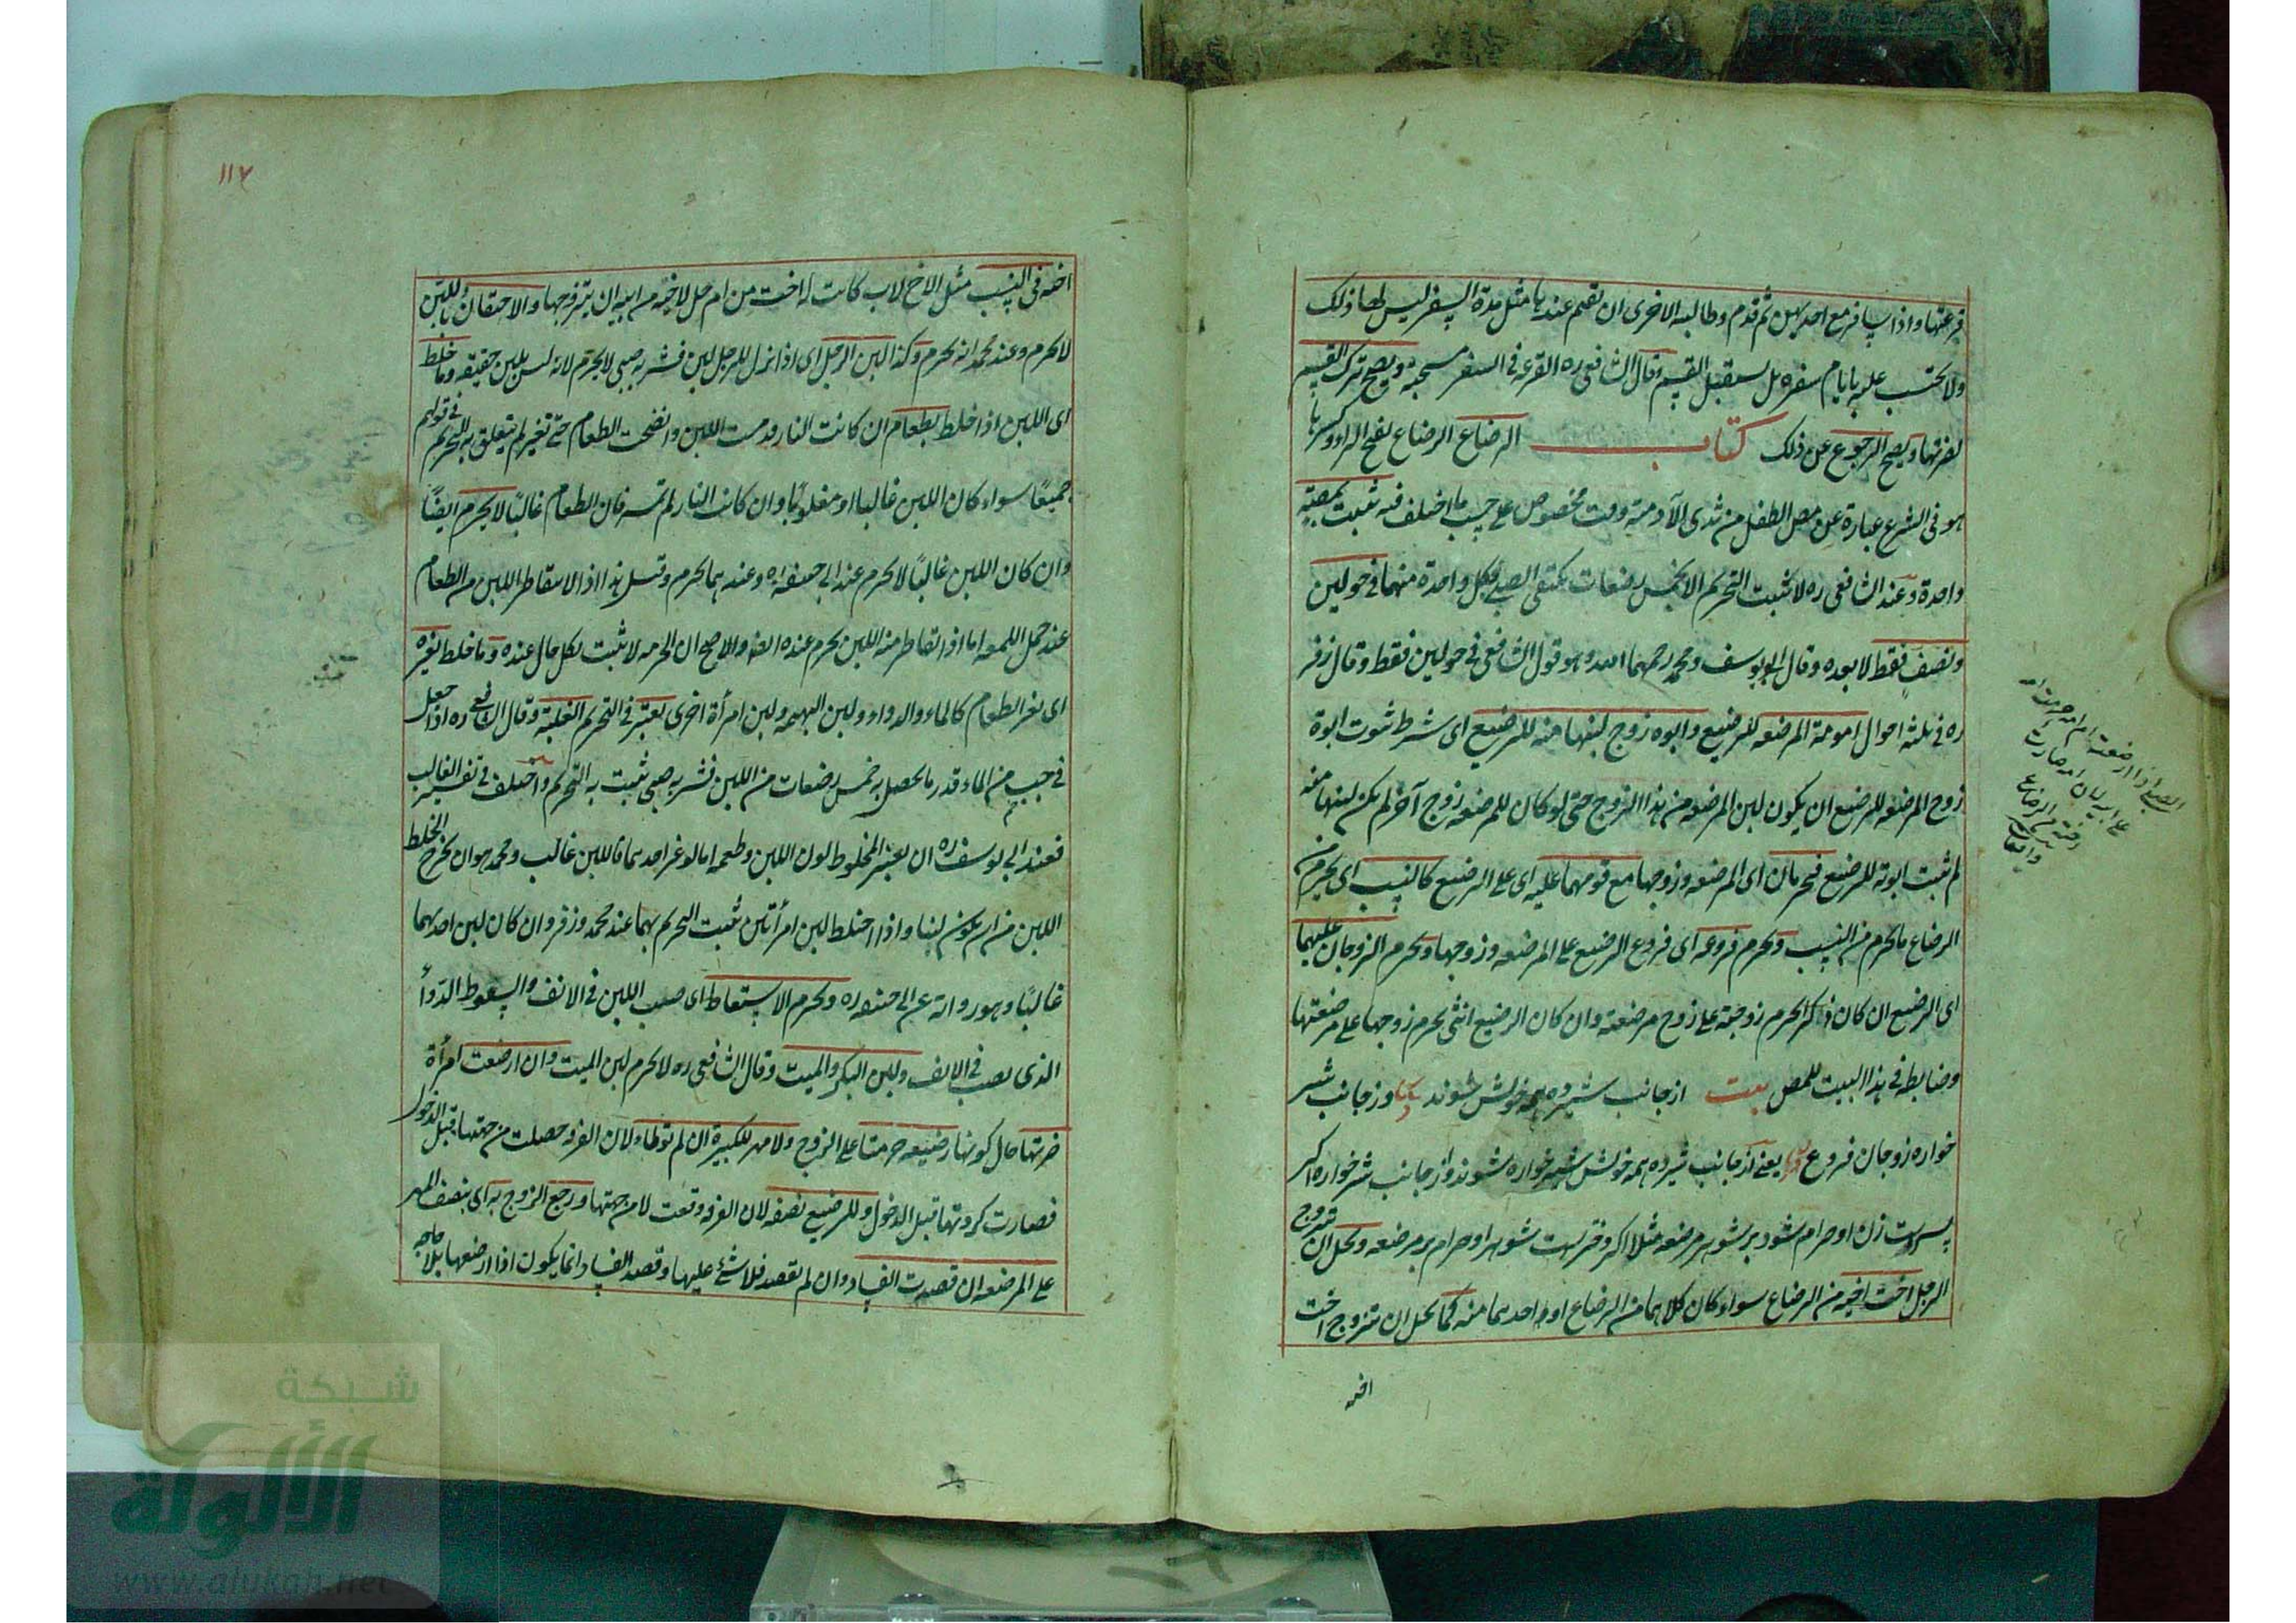 قرعتها واذا سافر مع احديهن ثم قدم وطالبه الاخرى ان يقيم عندها مثل مدة السفر ليس لها ذلك
ولا يحتسب عليه بايام سفره بل يستقبل القسم وقال الشافعى ره القرعة فى السفر مستحبة ويصح ترك القسم
لضرتها ويصح الرجوع عن ذلك كتاب الرضاع الرضاع بفتح الراء وكسرها
هو فى الشرع عبارة عن مص الطفل من ثدى الآدمية وقت مخصوص على حسب ما اختلف فيه تثبت بمصة
واحدة وعند الشافعى ره لا تثبت التحريم الا بخمس رضعات يكتفى الصبى بكل واحدة منها فى حولين
ونصف فقط لا بعده وقال ابو يوسف ومحمد رحمهما الله وهو قول الشافعى فى حولين فقط وقال زفر
ره فى ثلثة احوال امومة المرضعه للرضيع وابوه زوج لبنها منه للرضيع اى شرط ثبوت ابوة
زوج المرضعه للرضيع ان يكون لبن المرضعه من هذا الزوج حتى لو كان للمرضعه زوج آخر لم يكن لبنها منه
لم تثبت ابوته للرضيع فيحرمان اى المرضعه وزوجها مع قومهما عليه اى على الرضيع كالنسب اى يحرم من
الرضاع ما يحرم من النسب ويحرم فروعه اى فروع الرضيع على المرضعه وزوجها ويحرم الزوجان عليهما
اى الرضيع ان كان ذكرا يحرم زوجته على زوج مرضعته وان كان الرضيع انثى يحرم زوجها على مرضعتها
وضابطه فى هذا البيت للمص بيت از جانب شيرده همه خويش شوند وز جانب شير
خواره زوجان فروع يعنى از جانب شيرده همه خويش شيرخواره شوند واز جانب شيرخواره اكر
پسرست زن او حرام شود بر شوهر مرضعه مثلا اكر دخترست شوهر او حرام بر مرضعه ويحل ان تتزوج
الرجل اخت اخيه من الرضاع سواء كان كلاهما من الرضاع او احدهما منه كما يحل ان تتزوج اخت
اخيه
الصبى اذا ارضعته
۱۱۷
اخيه فى النسب مثل الاخ لاب كانت له اخت من ام حل لاخيه من ابيه ان يتزوجها والاحتقان باللبن
لا يحرم وعند محمد انه يحرم وكذا لبن الرجل اى اذا نزل للرجل لبن فشربه صبى لا يحرم لانه ليس بلبن حقيقة وما خلط
اى اللبن اذا خلط بطعام ان كانت النار قد مست اللبن وانضجت الطعام حتى تغير لم يتعلق به التحريم فى قولهم
جميعا سواء كان اللبن غالبا او مغلوبا وان كانت النار لم تمسه فان الطعام غالبا لا يحرم ايضا
وان كان اللبن غالبا لا يحرم عند ابى حنيفه ره وعندهما يحرم وقيل هذا اذا لا يتقاطر اللبن من الطعام
عند حمل اللقمه اما اذا تقاطر منه اللبن يحرم عنده ايضا والاصح ان الحرمه لا تثبت لكل حال عنده وما خلط بغيره
اى بغير الطعام كالماء والدواء ولبن البهيمه ولبن امرأة اخرى يعتبر فى التحريم الغلبة وقال الشافعى ره اذا جعل
فى جب من الماء قدر ما يحصل به خمس رضعات من اللبن فشربه صبى تثبت به التحريم واختلف فى تفسير الغالب
فعند ابى يوسف ره ان يعتبر المخلوط لون اللبن وطعمه اما لو غير احدهما فاللبن غالب ومحمد هو ان يخرج الخلط
اللبن من ان يكون لبنا واذا اختلط لبن امرأتين تثبت التحريم بهما عند محمد وزفر وان كان لبن احدهما
غالبا وهو رواية عن ابى حنيفه ره ويحرم الاستعاط اى صب اللبن فى الانف والسعوط الدوأ
الذى يصب فى الانف ولبن البكر والميت وقال الشافعى ره لا يحرم لبن الميت وان ارضعت امرأة
ضرتها حال كونها رضيعه حرمتا على الزوج ولا مهر للكبيرة ان لم توطأ لان الفرقه حصلت من جهتها قبل الدخول
فصارت كردتها قبل الدخول وللرضيع نصفه لان الفرقه وقعت لا من جهتها ورجع الزوج به اى بنصف المهر
على المرضعه ان قصدت الفساد وان لم تقصد فلا شئ عليها وقصد الفساد انما يكون اذا ارضعها بلا حاجه
شبكة
الألوكة
www.alukah.net